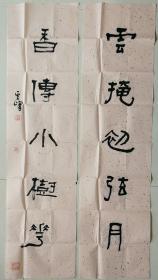 雲掩初弦月
香傳小樹花